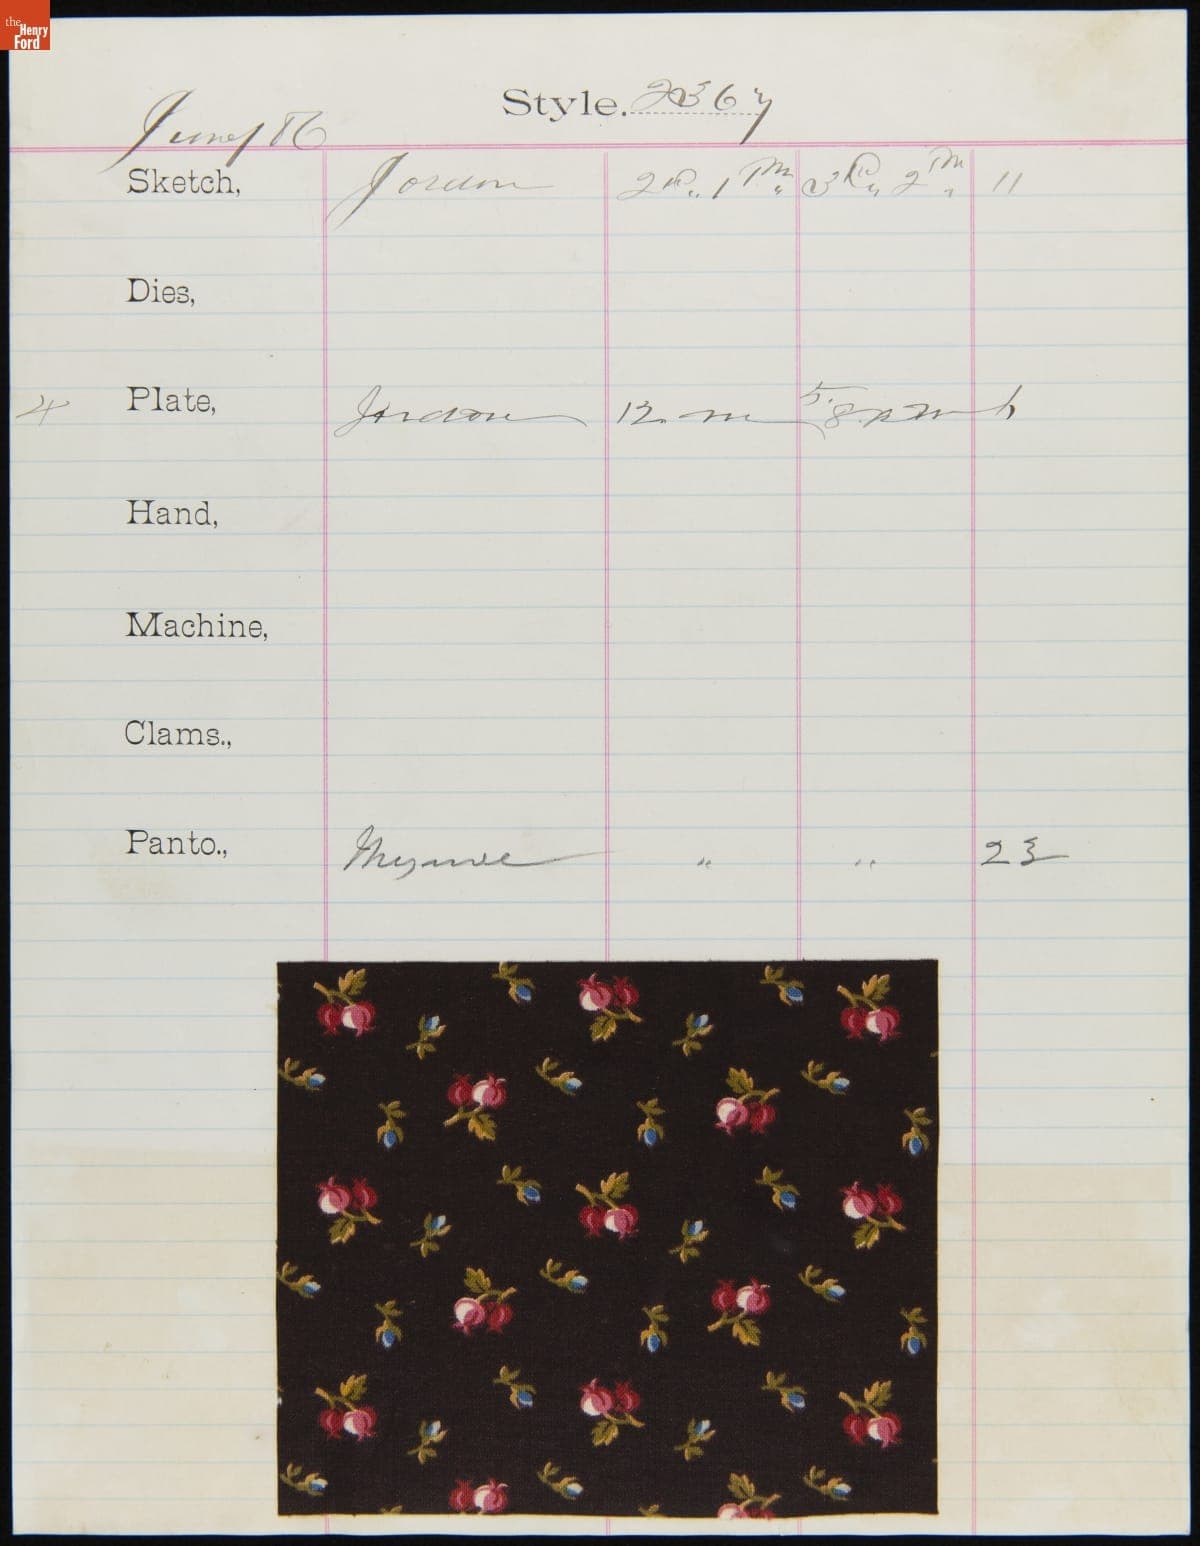 the Henry Ford
Style. 2367
June/86
Sketch, Jordon 2 R. " 1 M. " 3 R. " 2 M. " 11
Dies,
4 Plate, Jordon 12. m 5. 8.
Hand,
Machine,
Clams.,
Panto., " " 23